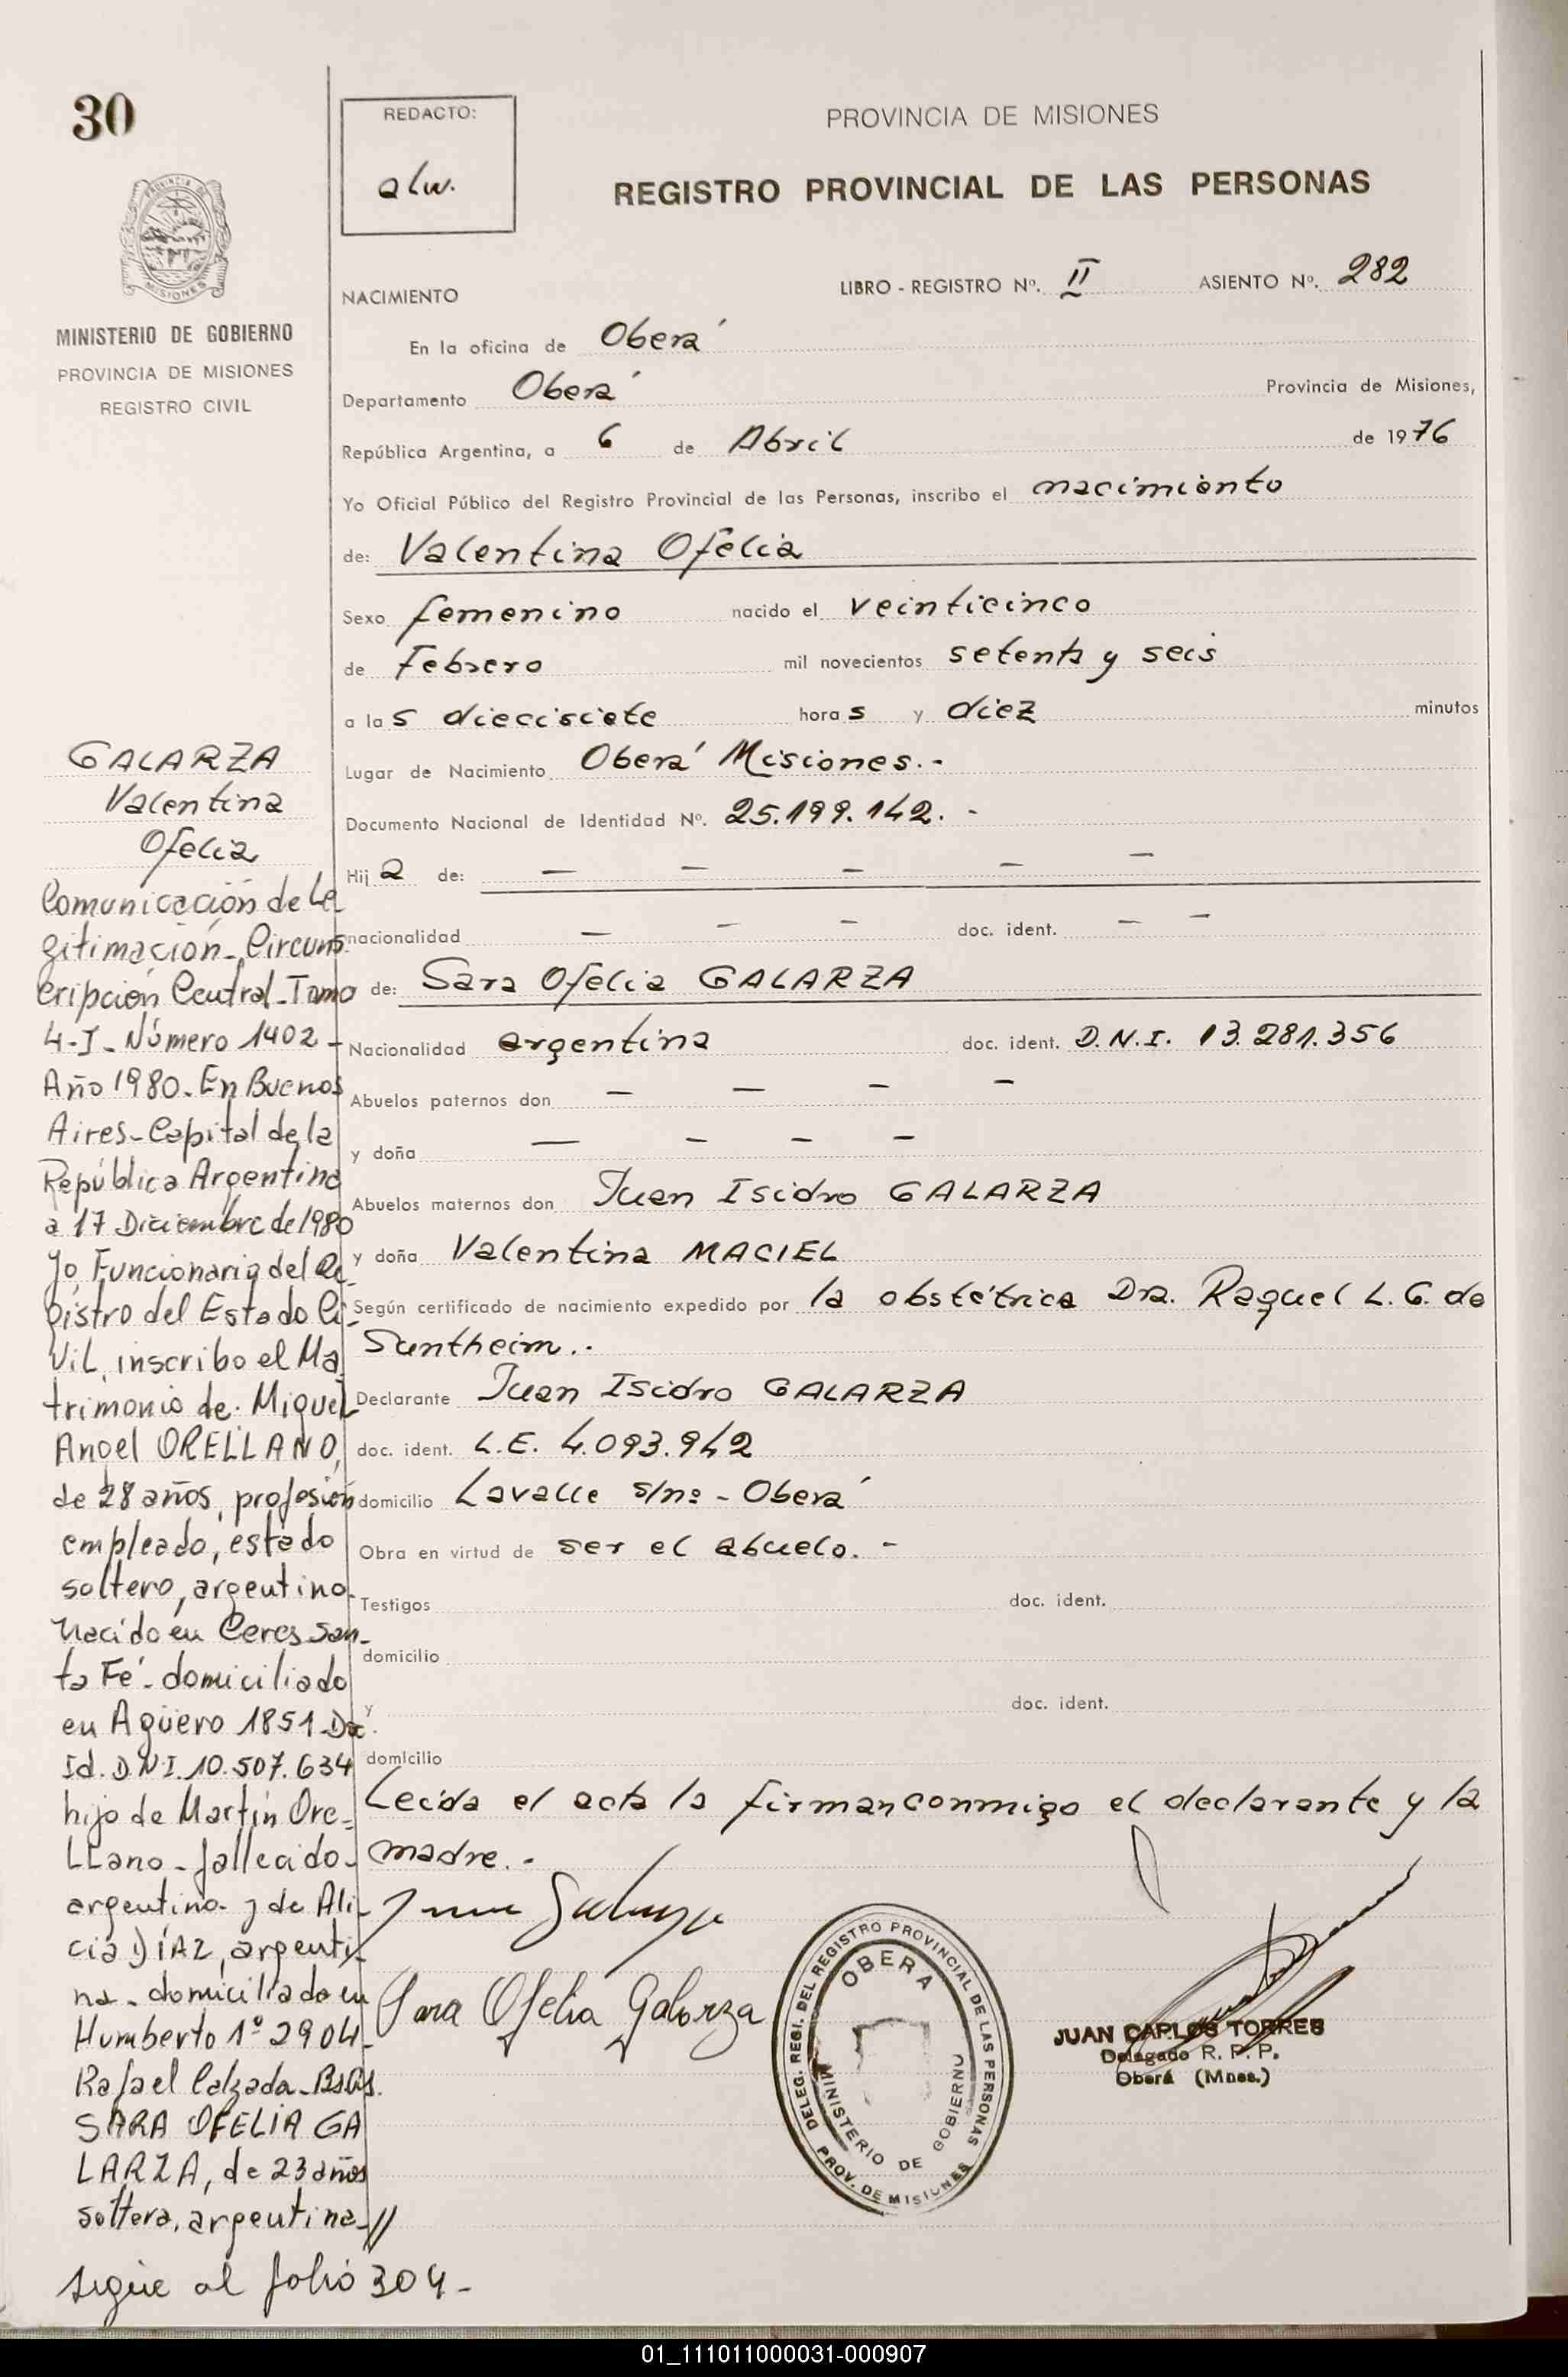 30
REDACTO:
alw.
PROVINCIA DE MISIONES
REGISTRO PROVINCIAL DE LAS PERSONAS
PROVINCIA DE
MISIONES
MINISTERIO DE GOBIERNO
PROVINCIA DE MISIONES
REGISTRO CIVIL
LIBRO - REGISTRO Nº. II ASIENTO Nº. 282
NACIMIENTO
En la oficina de Oberá
Departamento Oberá Provincia de Misiones,
República Argentina, a 6 de Abril de 1976
Yo Oficial Público del Registro Provincial de las Personas, inscribo el nacimiento
de: Valentina Ofelia
Sexo femenino nacido el veinticinco
de Febrero mil novecientos setenta y seis
a las diecisiete horas y diez minutos
Lugar de Nacimiento Oberá Misiones.-
Documento Nacional de Identidad Nº. 25.199.142. -
Hija de: — — — — —
nacionalidad — — — doc. ident. — —
de: Sara Ofelia GALARZA
Nacionalidad argentina doc. ident. D.N.I. 13.281.356
Abuelos paternos don — — — —
y doña — — — —
Abuelos maternos don Juan Isidro GALARZA
y doña Valentina MACIEL
Según certificado de nacimiento expedido por la obstétrica Dra. Raquel L. G. de
Suntheim.-
Declarante Juan Isidro GALARZA
doc. ident. L.E. 4.093.942
domicilio Lavalle s/nº - Oberá
Obra en virtud de ser el abuelo. -
Testigos doc. ident.
domicilio
y doc. ident.
domicilio
Leida el acta la firman conmigo el declarante y la
madre. -
Sara Ofelia Galarza
DELEG. REGI. DEL REGISTRO PROVINCIAL DE LAS PERSONAS
OBERA
MINISTERIO DE GOBIERNO
PROV. DE MISIONES
JUAN CARLOS TORRES
Delegado R. P. P.
Oberá (Mnes.)
GALARZA
Valentina
Ofelia
Comunicación de Le
gitimación - Circuns
cripción Central - Tomo
4-I - Número 1402 -
Año 1980 - En Buenos
Aires - Capital de la
República Argentina
a 17 Diciembre de 1980
Yo, Funcionario del Re-
gistro del Estado Ci-
vil, inscribo el Ma
trimonio de: Miguel
Angel ORELLANO,
de 28 años, profesión
empleado, estado
soltero, argentino -
Nacido en Ceres San-
ta Fé - domiciliado
en Agüero 1851 - Doc.
Id. D.N.I. 10.507.634
hijo de Martín Ore-
LLano - fallecido -
argentino - y de Ali-
cia DÍAZ, argenti-
na - domiciliado en
Humberto 1º 2904 -
Rafael Calzada - Bs As.
SARA OFELIA GA
LARZA, de 23 años
soltera, argentina - //
sigue al folio 304 -
01_111011000031-000907